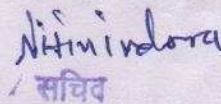 Nitinindora
सचिव